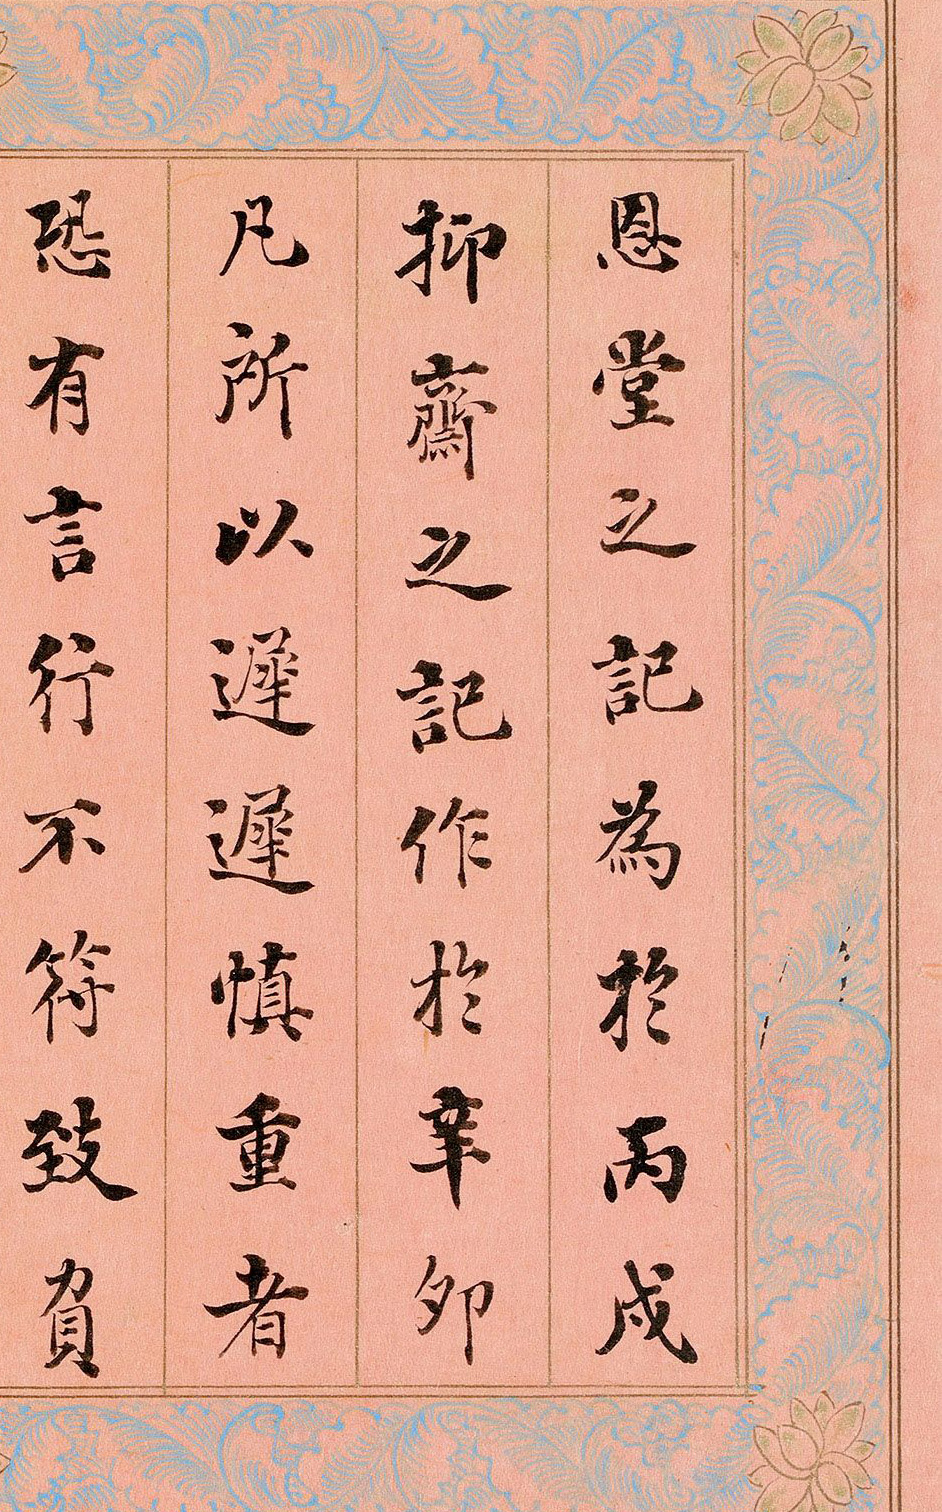 恩堂之記為於丙戌
抑齋之記作於辛卯
凡所以遲遲慎重者
恐有言行不符致負